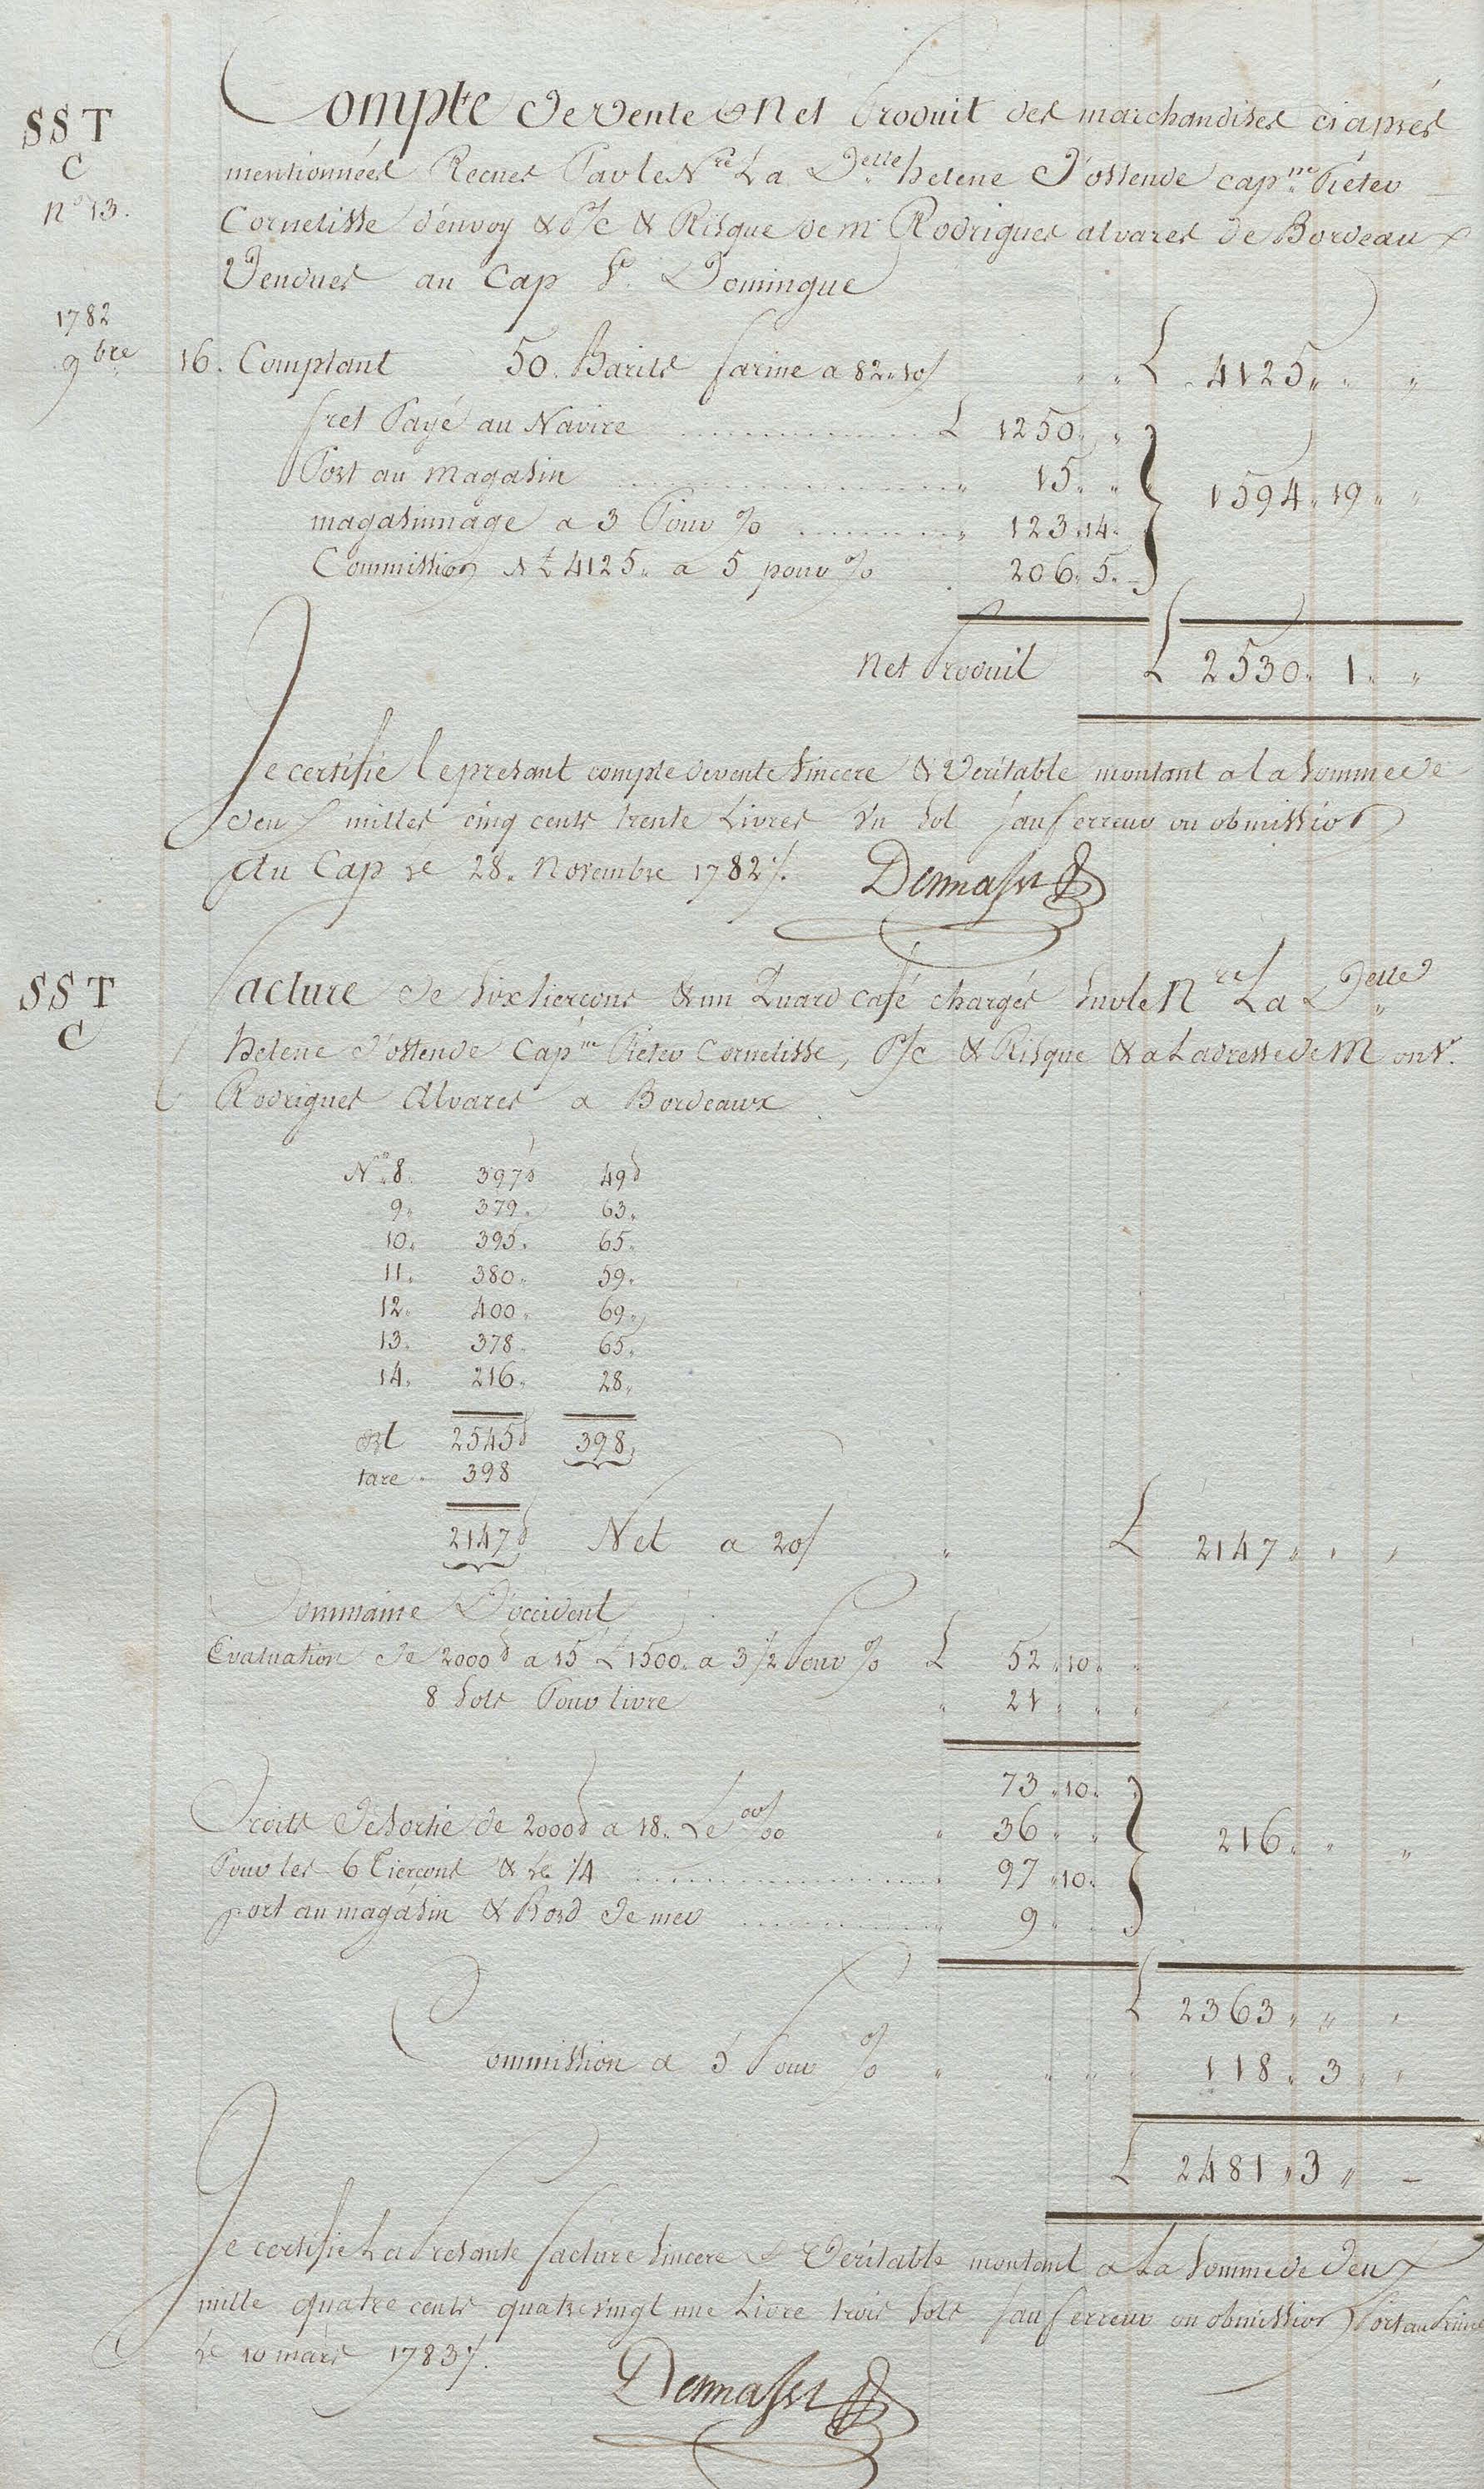 SST
C
n° 13.
Compte de vente & Net Produit des marchandises ci après
mentionnées Recues Par le N.re La D.elle helene D'ostende cap.ne Pieter
Cornelisse d'envoy & P/c & Risque de mr Rodrigues alvares de Bordeaux
Vendues au Cap St. Domingue
1782
9bre 16. Comptant 50. Barils farine a 82.10/ £ 4125 " "
fret Payé au Navire £ 1250 " "
Port au magasin " 15 " " 1594. 19 "
magasinnage a 3 Pour % " 123. 14.
Commission s/ £ 4125. a 5 pour % 206. 5.
Net Produit £ 2530. 1. "
Je certifie le presant compte de vente sincere & veritable montant a la somme de
deux milles cinq cents trente Livres Un Sol sauf erreur ou obmission
Au Cap le 28. Novembre 1782 /.
SST
C
Facture de six tierçons & un Quard café chargés sur le N.re La D.elle
helene d'ostende Cap.ne Pieter Cornelisse, P/c & Risque & a Ladresse de Monsr.
Rodrigues Alvares a Bordeaux
N° 8. 397 49
9. 379. 63.
10. 395. 65.
11. 380. 59.
12. 400. 69.
13. 378. 65.
14. 216. 28.
ort 2545 398.
tare 398
2147 Net a 20/ £ 2147 " "
Dommaine D'occident
Evaluation de 2000 a 15 £ 1500. a 3 1/2 Pour % £ 52. 10.
8 Sols Pour livre " 21 " "
73. 10.
Droits de sortie de 2000 a 18. Le %00 " 36 " " 216. " "
Pour les 6 Tierçons & le 1/4 97. 10.
port au magasin & Bord de mer " 9
£ 2363 " "
Commission a 5 Pour % " 118. 3 "
£ 2481. 3 " -
Je certifie La Presante facture sincere & Veritable montant a La Somme de deux
mille quatre cents quatre vingt une Livre trois Sols sauf erreur ou obmission Port au Prince
le 10 mars 1783 /.